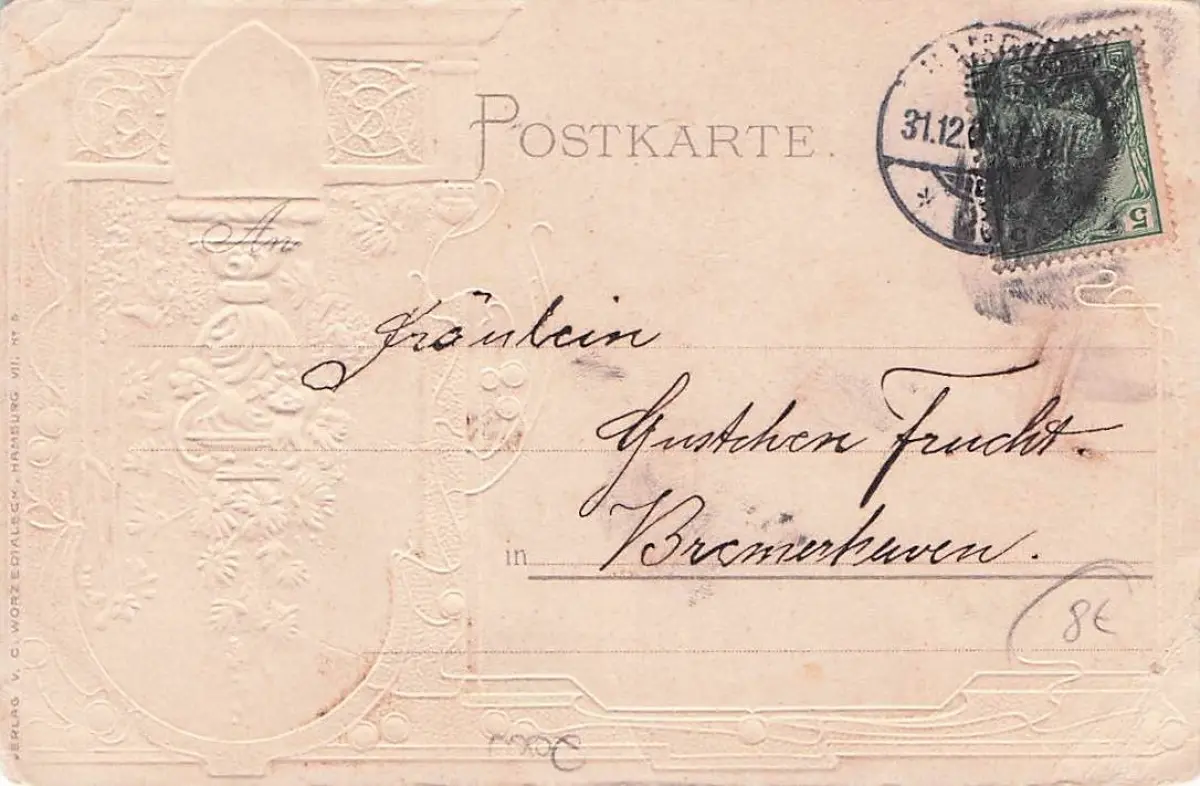 POSTKARTE.
31.12
5
An
Fräulein
Gustchen Frucht.
in Bremerhaven.
8€
VERLAG V. C. WORZEDIALECK, HAMBURG VII. Nº 5